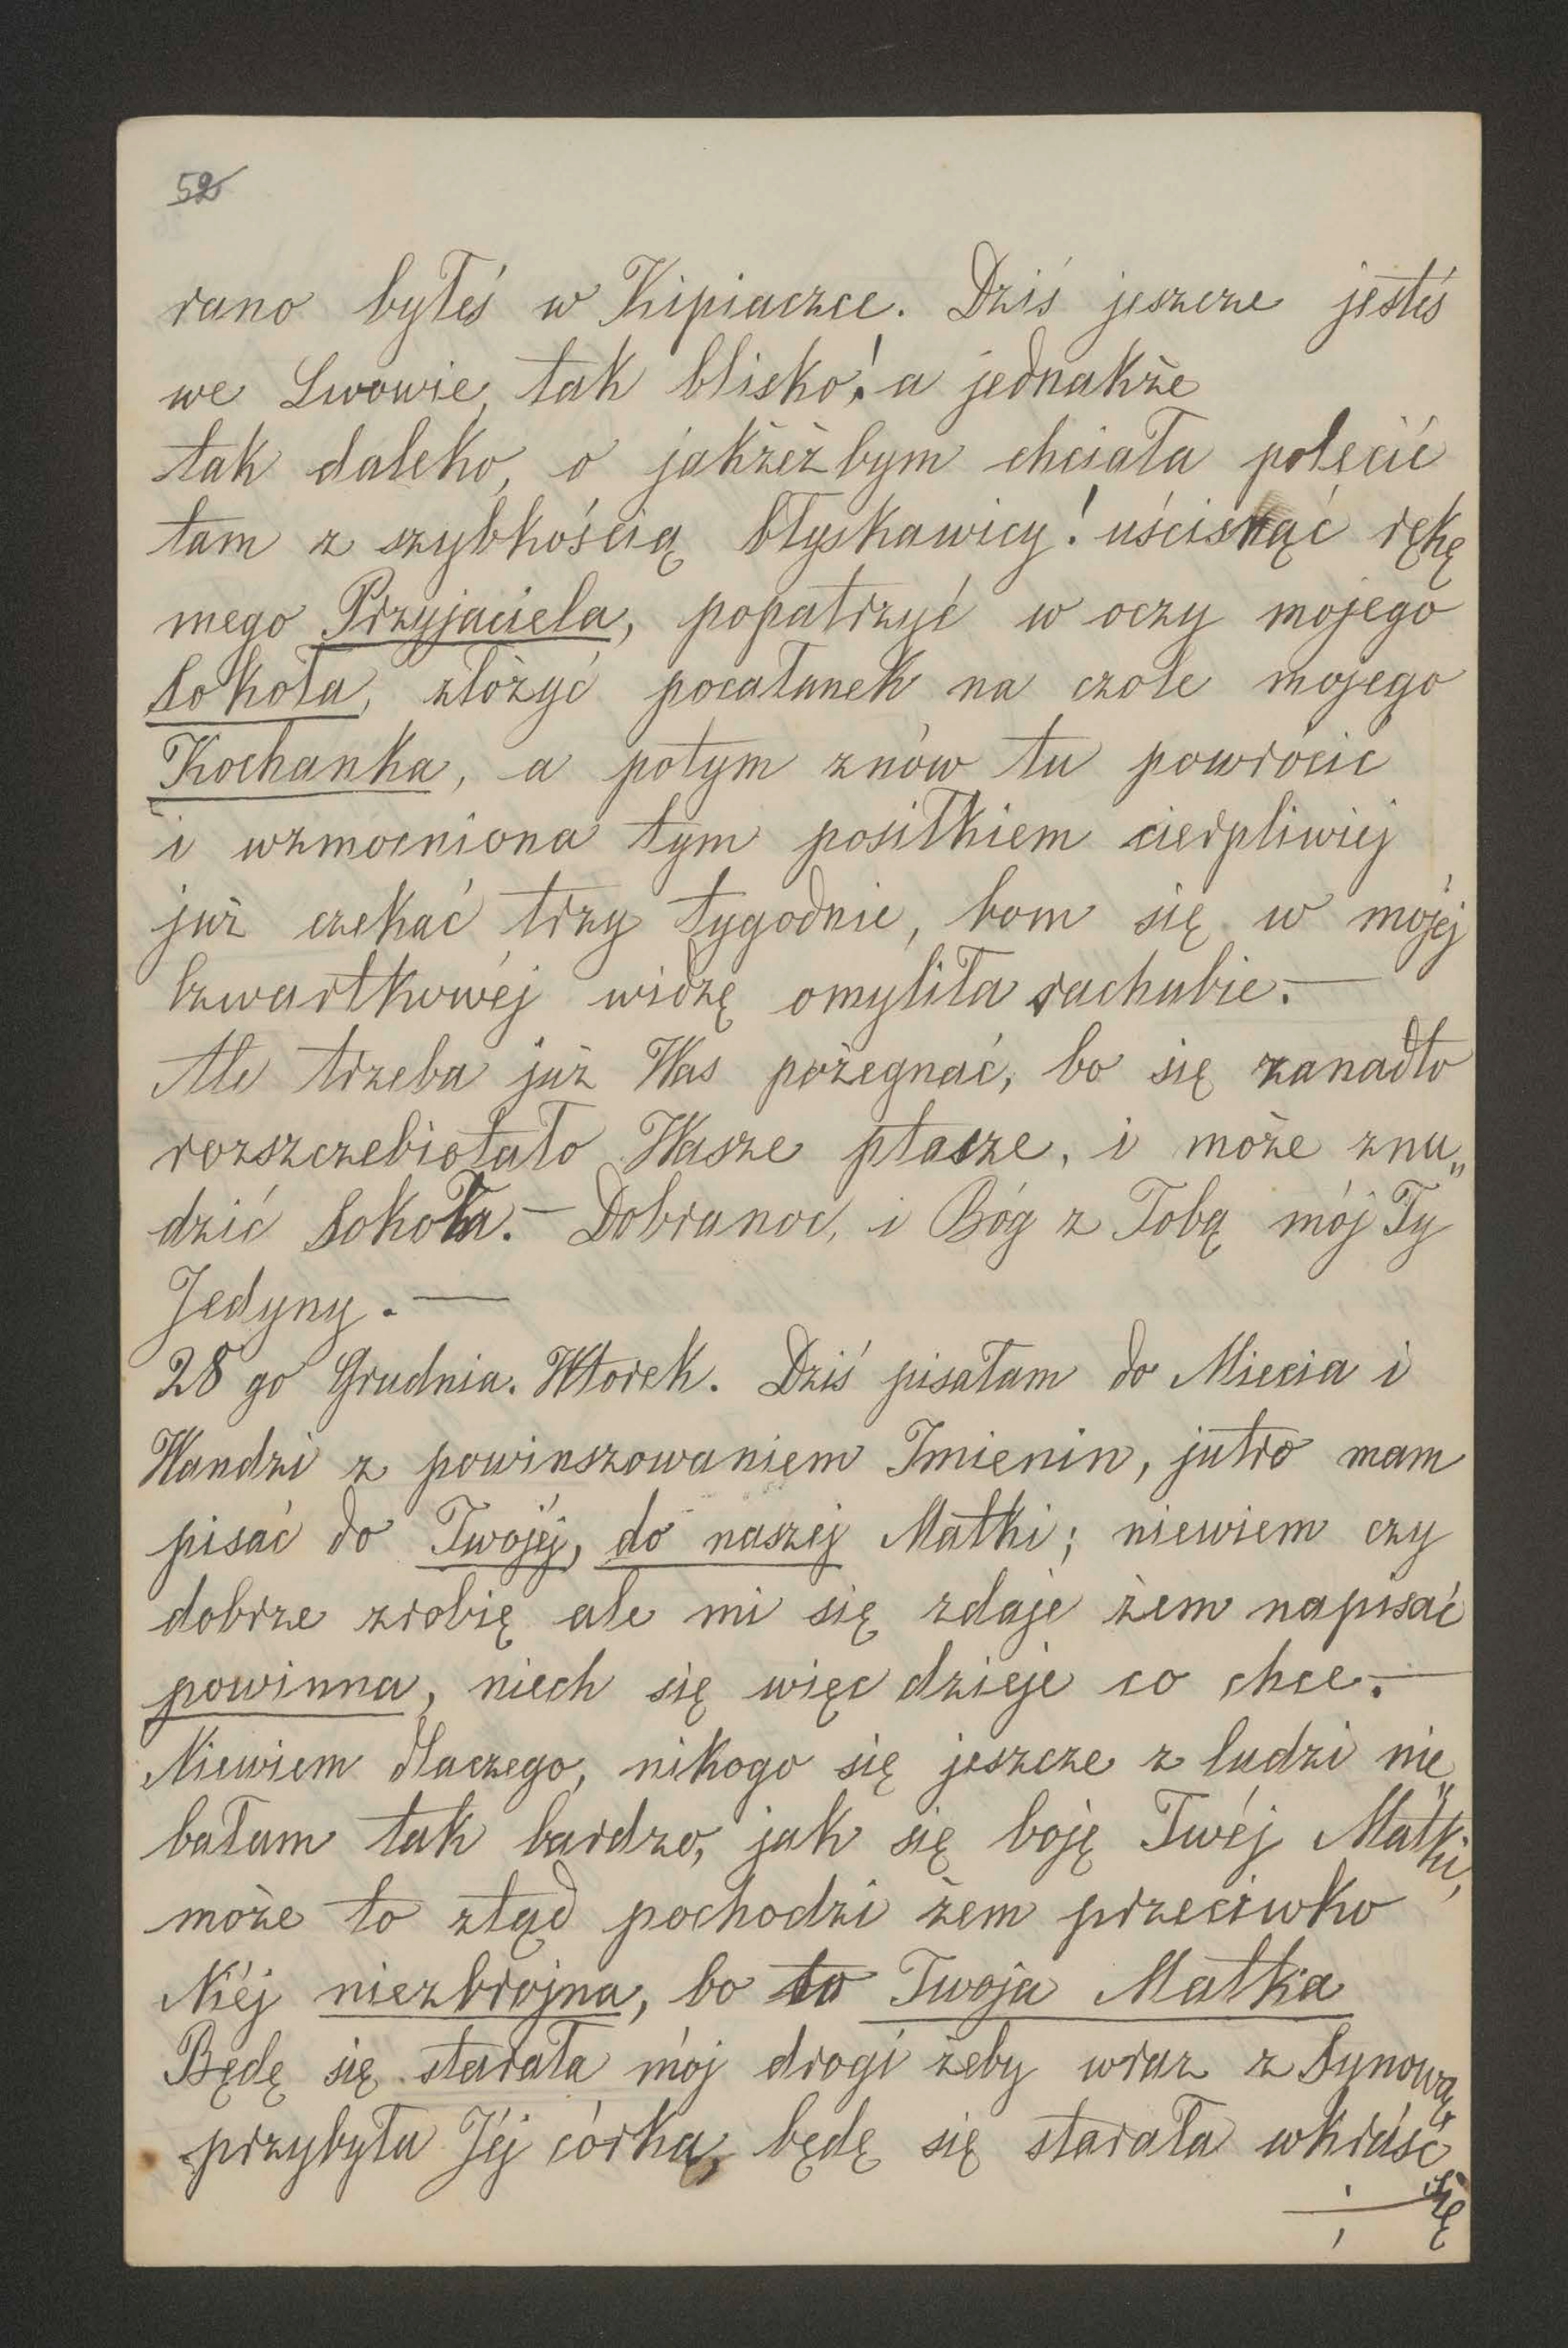 52
rano byłeś w Kipiaczce. Dziś jeszcze jesteś
we Lwowie, tak blisko! a jednakże
tak daleko, o jakżeż bym chciała polecić
tam z szybkością błyskawicy! uścisnąć rękę
mego Przyjaciela, popatrzyć w oczy mojego
Sokoła, złożyć pocałunek na czole mojego
Kochanka, a potym znów tu powrócić
i wzmocniona tym posiłkiem cierpliwiej
już czekać trzy tygodnie, bom się w mojéj
Czwartkowéj widzę omyliła rachubie. —
Ale trzeba już Was pożegnać, bo się zanadto
rozszczebiotało Wasze ptasze, i może znu„
dzić Sokoła. — Dobranoc, i Bóg z Tobą mój Ty
Jedyny. —
28 go Grudnia. Wtorek. Dziś pisałam do Miecia i
Wandzi z powinszowaniem Imienin, jutro mam
pisać do Twojéj, do naszej Matki; niewiem czy
dobrze zrobię ale mi się zdaje żem napisać
powinna, niech się więc dzieje co chce. —
Niewiem dlaczego, nikogo się jeszcze z ludzi nie„
bałam tak bardzo, jak się boję Twéj Matki,
może to ztąd pochodzi żem przeciwko
Niéj niezbrojna, bo to Twoja Matka
Będę się starała mój drogi żeby wraz z Synową,
przybyła Jéj córka, będę się starała wkraść
się